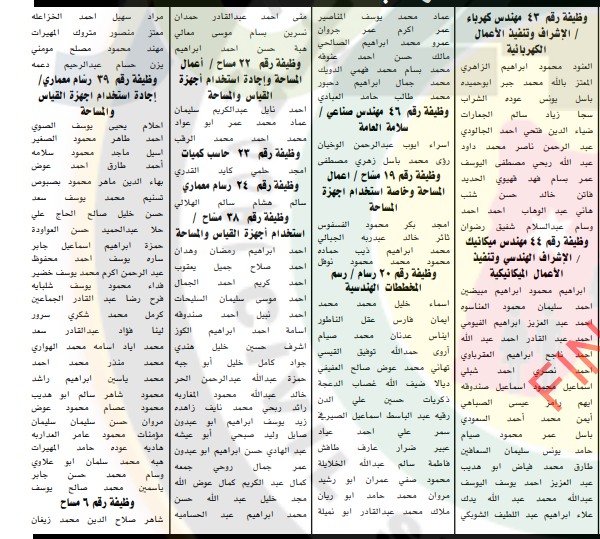 وظيفة رقم ٤٣ مهندس كهرباء
/ الإشراف وتنفيذ الأعمال
الكهربائية
العنود محمود ابراهيم الزاهري
المعتز بالله محمد جبر ابوحميده
باسل يونس عوده الشراب
سجا زياد سالم الجمارات
ضياء الدين فتحي احمد الجالودي
عبد الرحمن ناصر محمد داود
عبد الله ربحي مصطفى اليوسف
عمر بسام فهد قهيوي الحديد
فاتن خالد حسن شنب
هاني عبد الوهاب احمد احمد
وسام عبدالسلام شفيق رضوان
وظيفة رقم ٤٤ مهندس ميكانيك
/ الإشراف الهندسي وتنفيذ
الأعمال الميكانيكية
ابراهيم محمود ابراهيم مبيضين
احمد سليمان محمود العناسوه
احمد عبد العزيز ابراهيم الفيومي
احمد عبد القادر احمد عبد الله
احمد ناجح ابراهيم العقرباوي
احمد نصري احمد شبلي
اسماعيل محمود اسماعيل صندوقه
ايهم رامز عيسى الصباهي
أيمن محمد أحمد السعودي
باسل عمر محمود صيام
حامد يونس سليمان السعافين
طارق محمد فياض ابو هديب
عبد العزيز احمد يوسف اليوسف
عبدالله محمد عبد الله بدك
علاء ابراهيم عبد اللطيف الشوبكي
عماد محمد يوسف المناصير
عمر اكرم عمر جروان
عمرو محمد ابراهيم الصالحي
مالك حسن احمد عنوقه
محمد بسام محمد فهمي الدويك
محمد جمال ابراهيم دحبور
محمد طالب حامد العبادي
وظيفة رقم ٤٦ مهندس صناعي /
سلامة العامة
اسراء ايوب عبدالرحمن الوخيان
رؤى محمد باسل زهري مصطفى
وظيفة رقم ١٩ مساح / اعمال
المساحة وخاصة استخدام اجهزة
المساحة
امجد بكر محمود القسقوس
ثائر خالد عبدربه الجيالي
محمد ابراهيم ذيب حماده
محمود محمد محمود نوفل
وظيفة رقم ٢٠ رسام / رسم
المخططات الهندسية
اسماء خليل محمد محمد
ايمان فارس عقل الناطور
ايناس عدنان محمد صيام
أروى حمدالله توفيق القيسي
تهاني محمد عوض صالح العفيفي
ديالا ضيف الله غصاب الدعجة
ذكريات حسين علي الدن
رقيه عبد الباسط اسماعيل الصيرفي
سمر علي احمد عباد
عبير ضرار عارف طافش
فاطمة سالم عبدالله الخلايلة
محمود صفي عمران ابو رشيد
مروان محمد حامد ابو ريان
ملاك محمد عبدالقادر ابو نميلة
مثى احمد عبدالقادر حمدان
نسرين بسام موسى معالي
هبة حسن احمد ابراهيم
وظيفة رقم ٢٢ مساح / أعمال
المساحة وإجادة استخدام أجهزة
القياس والمساحة
احمد نايل عبدالكريم سليمان
عماد محمد عمر ابو عواد
محمد احمد محمد الرقب
وظيفة رقم ٢٣ حاسب كميات
امجد حلمي كايد القدري
وظيفة رقم ٢٤ رسام معماري
سالم هشام سالم الهلالي
وظيفة رقم ٣٨ مساح /
استخدام أجهزة القياس والمساحة
احمد ابراهيم رمضان وهدان
احمد صلاح جميل يعقوب
احمد كريم احمد الجمال
احمد موسى سليمان السليحات
احمد نبيل احمد صندوقه
اسامة احمد ابراهيم الكوز
اشرف حسين خليل هندي
جواد كامل خليل أبو جبه
حمزة عبدالله عبدالرحمن الحر
خالد عبدالله محمود المغاربه
رائد ربحي محمد نايف زاهده
زيد يوسف ابراهيم ابو عبدون
صابل وليد صبحي أبو عيشه
عبد الهادي حسن ابراهيم ابو عبدون
عمر جمال روحي جمعه
كمال عبد الكريم كمال عوض الله
مجد خليل عبد الله حسن
محمد ابراهيم عيد الحساميه
مراد سهيل احمد الخزاعله
معتز منصور متروك المهيرات
مهند محمود مصلح مومني
يزن حسام عبدالرحيم دعمه
وظيفة رقم ٣٩ رسام معماري/
إجادة استخدام اجهزة القياس
والمساحة
احلام يحيى يوسف الصوي
احمد طاهر محمود الصغير
اسيل ماجد محمود سلامه
أحمد طارق احمد عوض
بهاء الدين ماهر محمود بصبوص
تسنيم محمد يوسف سعد
حسن خليل صالح الحاج علي
حلا عبدالحميد حسن العواودة
حمزة ابراهيم اسماعيل جابر
ساره يوسف احمد محفوظ
عبد الرحمن اكرم محمد يوسف خضير
فداء محمود يوسف شلبايه
فرح رضا عبد القادر الجماعين
كرمل محمد شكري سرور
لينا فؤاد عبدالقادر سعد
محمد اياد اسامه محمد الهواري
محمد منذر محمد احمد
محمد ياسين ابراهيم راشد
محمود شاهر سالم ابو هديب
محمود عصام محمود عوض
مروان حسن سليمان سليمان
مؤمنات محمود عامر العداربه
هاديه عوده حامد المهيرات
هبه محمد سلمان ابو علاوي
وسام محمد حسن جابر
ياسمين محمد صالح يوسف
وظيفة رقم ٦ مساح
شاهر صلاح الدين محمد زيغان
FIN